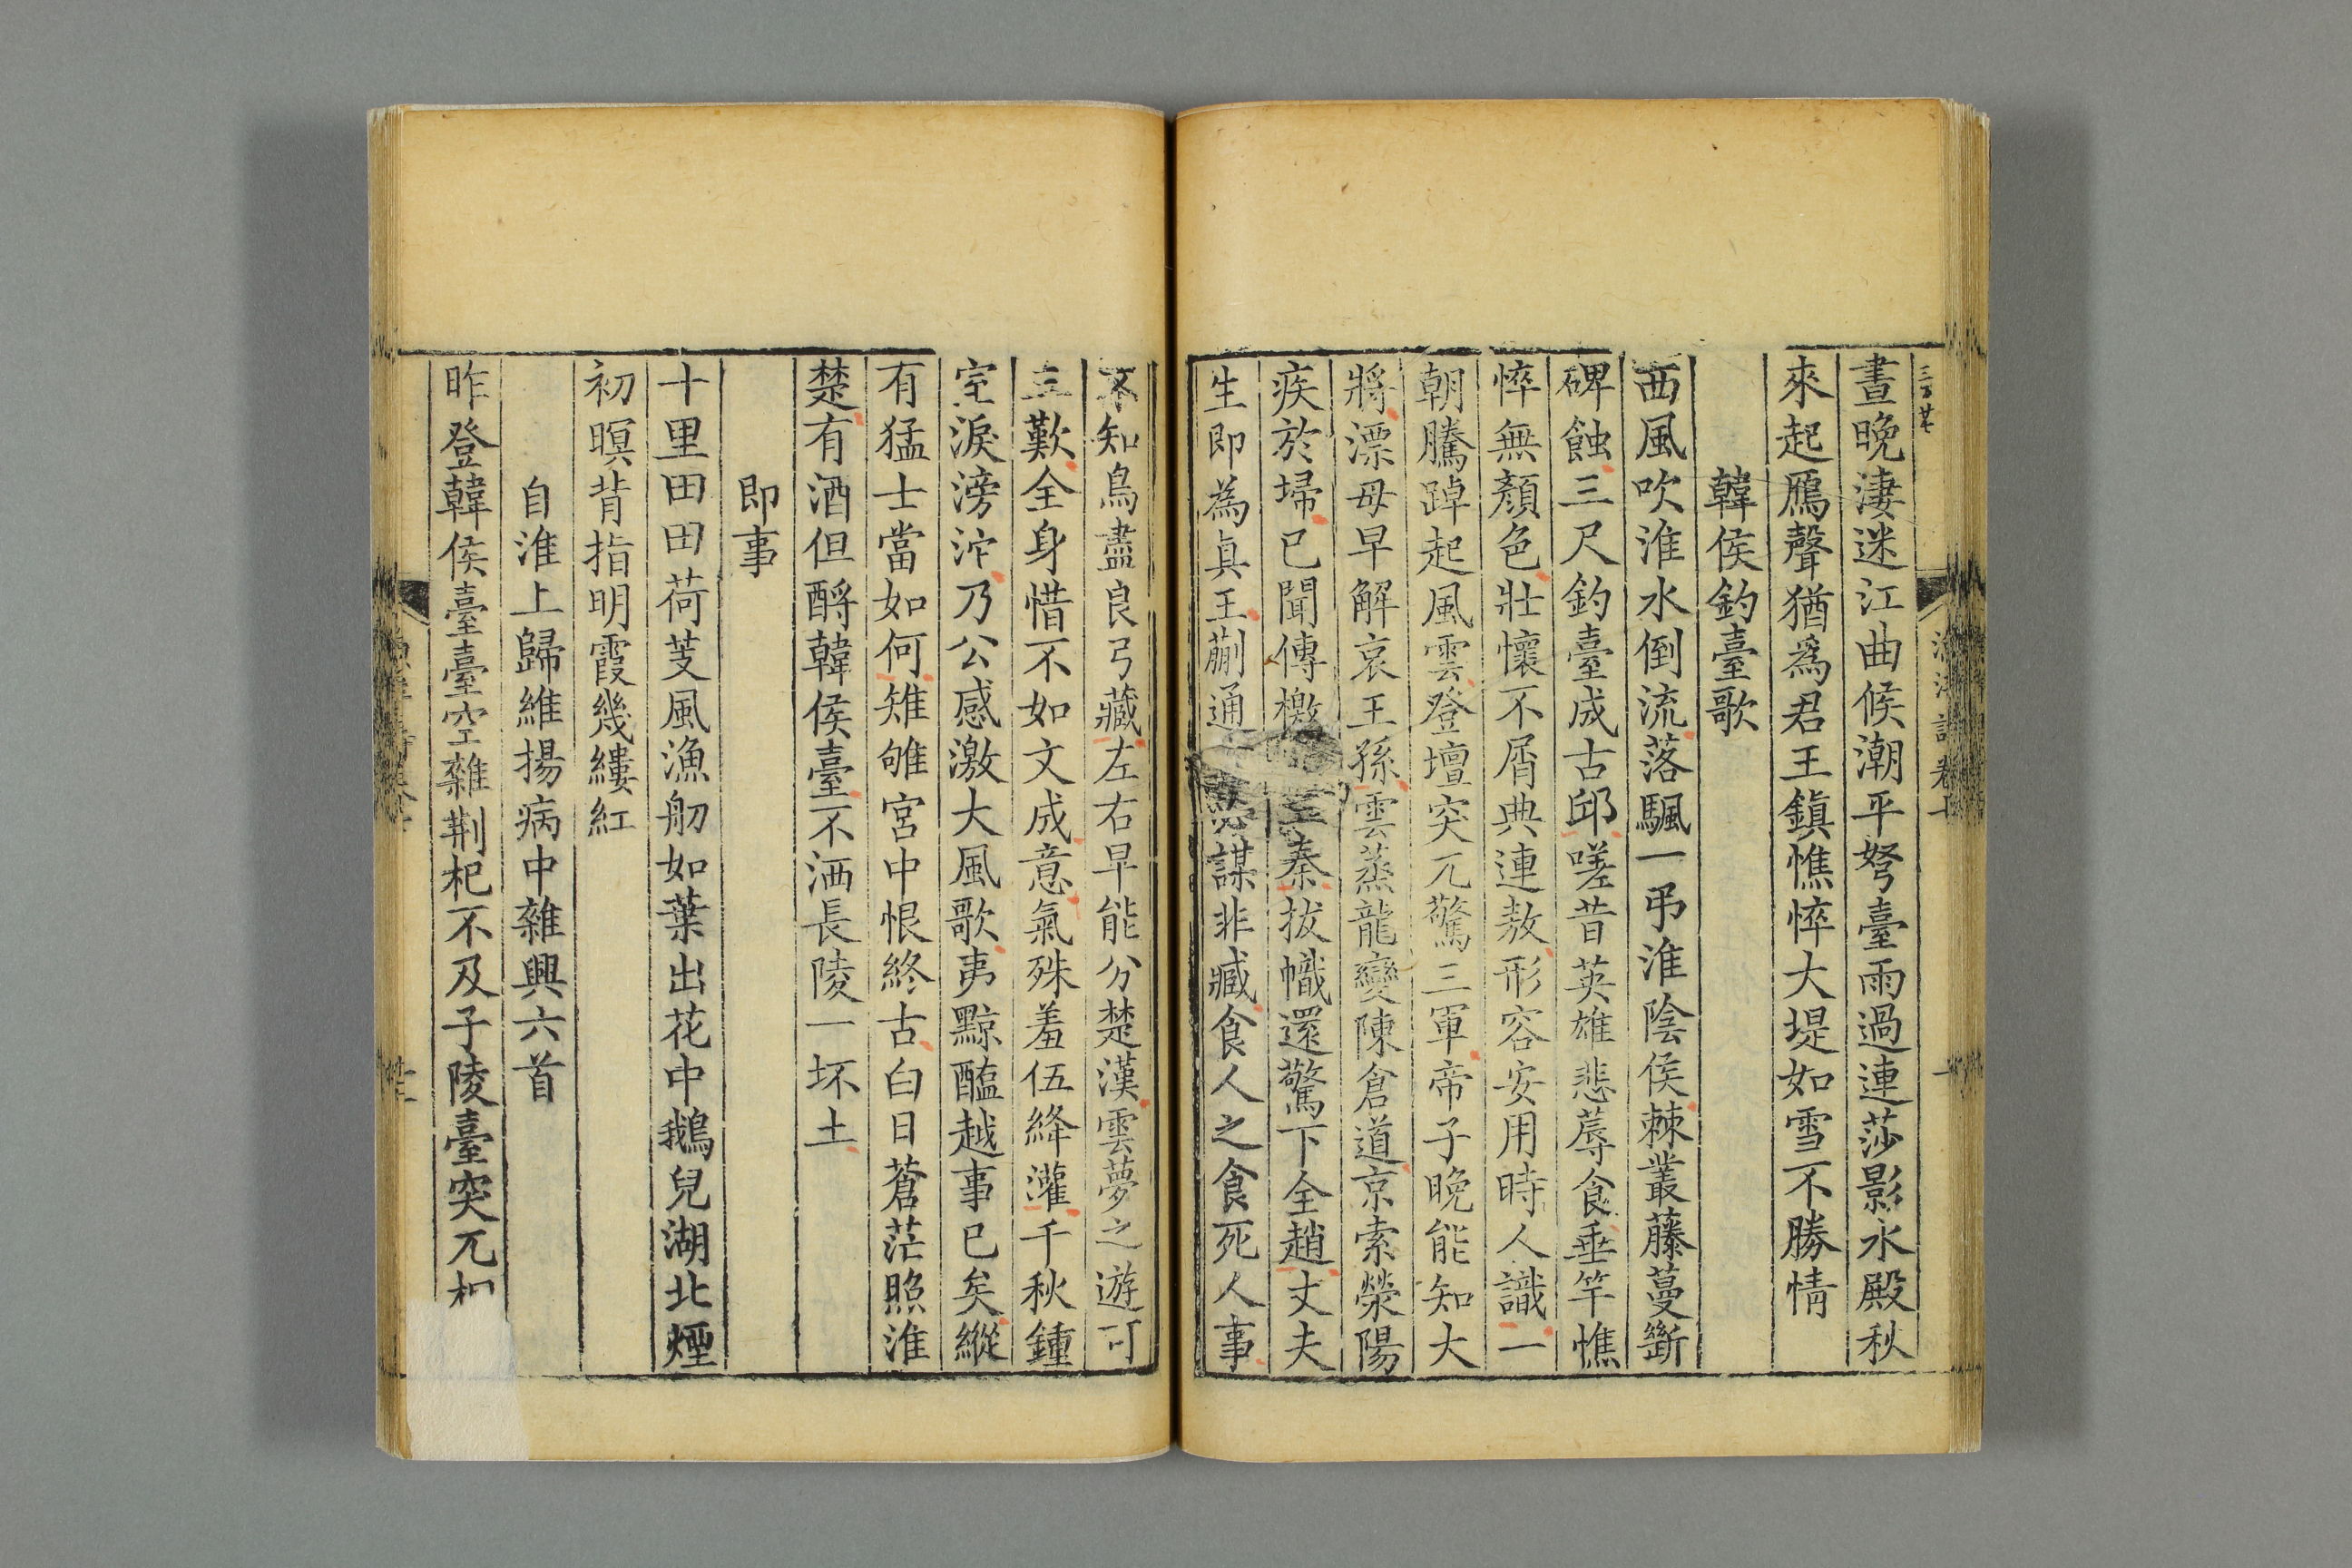 晝晚淒迷江曲候潮平弩臺雨過連莎影水殿秋
來起鴈聲猶爲君王鎮憔悴大堤如雪不勝情
韓侯釣臺歌
西風吹淮水倒流落颿一弔淮陰侯棘叢藤蔓斷
碑蝕三尺釣臺成古邱嗟昔英雄悲蓐食垂竿憔
悴無顏色壯懷不屑典連敖形容安用時人識一
朝騰踔起風雲登壇突兀驚三軍帝子晚能知大
將漂母早解哀王孫雲蒸龍變陳倉道京索滎陽
疾於埽已聞傳檄三秦拔幟還驚下全趙丈夫
生即為真王蒯通謀非臧食人之食死人事
不知鳥盡良弓藏左右早能分楚漢雲夢之遊可
三歎全身惜不如文成意氣殊羞伍絳灌千秋鍾
室淚滂沱乃公感激大風歌夷黥醢越事已矣縱
有猛士當如何雉雊宮中恨終古白日蒼茫照淮
楚有酒但酹韓侯臺不洒長陵一坏土
即事
十里田田荷芰風漁舠如葉出花中鵝兒湖北煙
初暝背指明霞幾縷紅
自淮上歸維揚病中雜興六首
昨登韓侯臺臺空雜荆杞不及子陵臺突兀相